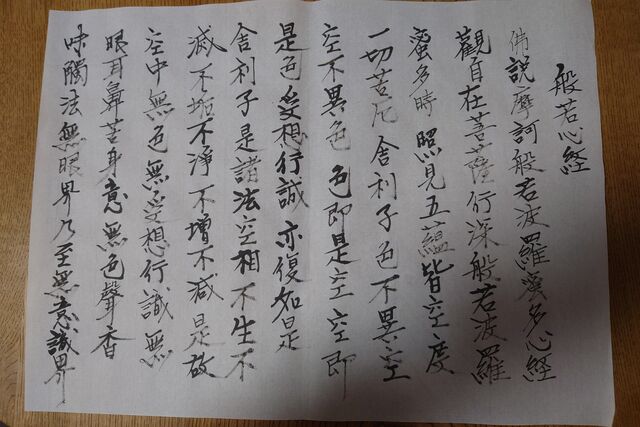 般若心経
佛説摩訶般若波羅蜜多心経
觀自在菩薩行深般若波羅
蜜多時照見五蘊皆空度
一切苦厄舎利子色不異空
空不異色色即是空空即
是色受想行識亦復如是
舎利子是諸法空相不生不
滅不垢不浄不増不減是故
空中無色無受想行識無
眼耳鼻舌身意無色聲香
味觸法無眼界乃至無意識界